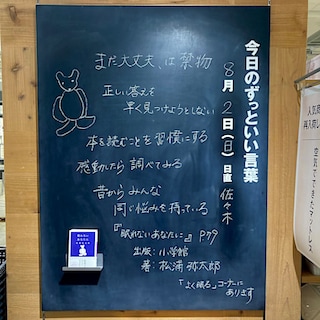 今日のずっといい言葉
8月2日(日)日直 佐々木
まだ大丈夫、は禁物
正しい答えを
早く見つけようとしない
本を読むことを習慣にする
感動したら調べてみる
昔からみんな
同じ悩みを持っている
『眠れないあなたに』P79
出版:小学館
著:松浦弥太郎
「よく眠る」コーナーに
あります
空気でできたマットレス